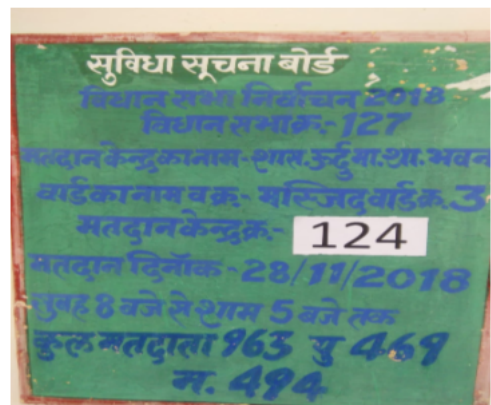 सुविधा सूचना बोर्ड
विधान सभा निर्वाचन 2018
विधान सभा क्र.- 127
मतदान केन्द्र का नाम - शास. उर्दु मा. शा. भवन
वार्ड का नाम व क्र.- मस्जिद वार्ड क्र. 3
मतदान केन्द्र क्र.- 124
मतदान दिनाँक - 28/11/2018
सुबह 8 बजे से शाम 5 बजे तक
कुल मतदाता 963 पु 469
म. 494